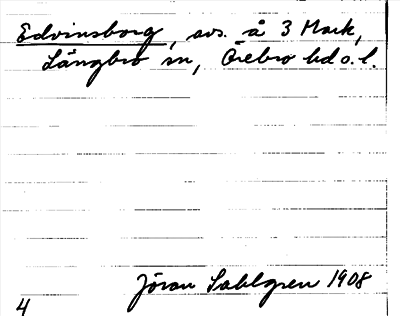 Edvinsborg, avs. å 3 Mark,
Längbro sn, Örebro hd o. l.
Jöran Sahlgren 1908
4